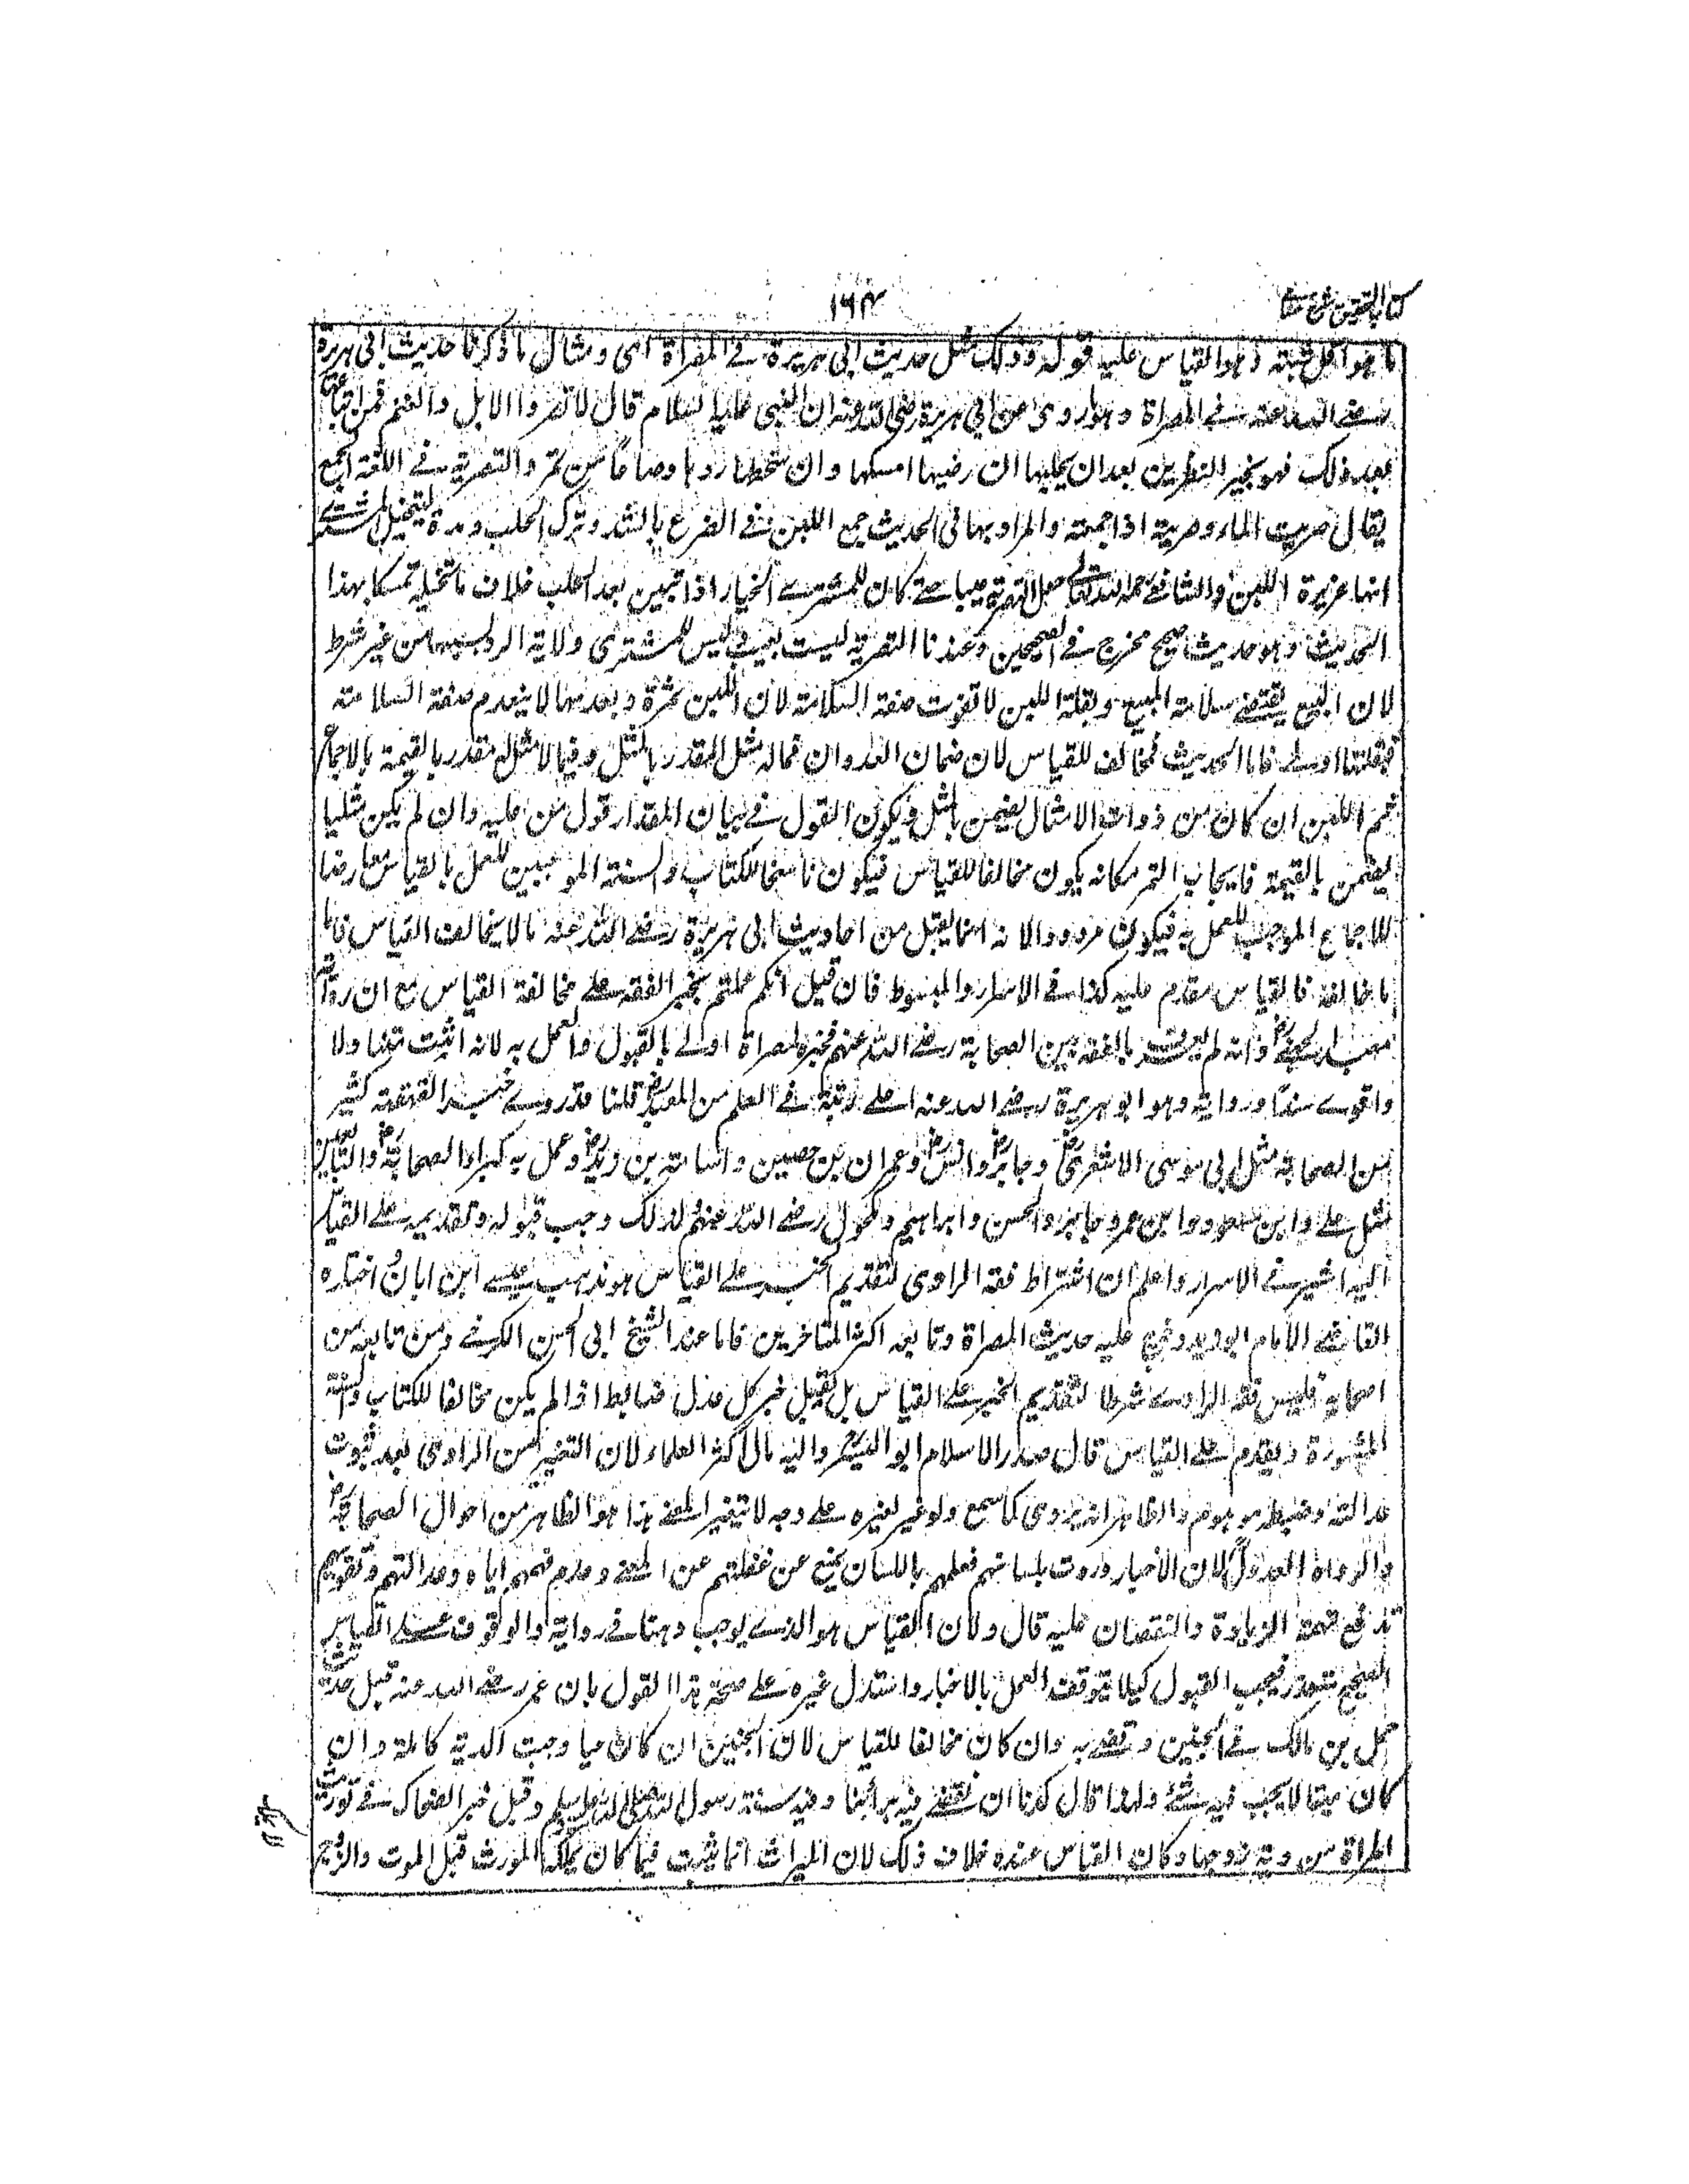 كتاب التحقيق شرح حسامى
١٦٤
ما هو اقل شبهة وهو القياس عليه قوله وذلك مثل حديث ابى هريرة فى المصراة اى ومثال ما ذكرنا حديث ابى هريرة
رضى الله عنه فى المصراة وهو ما روى عن ابى هريرة رضى الله عنه ان النبى عليه السلام قال لا تصروا الابل والغنم فمن ابتاعها
بعد ذلك فهو بخير النظرين بعد ان يحلبها ان رضيها امسكها وان سخطها ردها وصاعا من تمر والتصرية فى اللغة الجمع
يقال صريت الماء وصريته اذا جمعته والمراد بها فى الحديث جمع اللبن فى الضرع بالشد وترك الحلب مدة ليتخيل المشترى
انها غزيرة اللبن والشافعى رحمه الله تعالى جعل التصرية عيبا حتى كان للمشترى الخيار اذا تبين بعد الحلب خلاف ما تخيله تمسكا بهذا
الحديث وهو حديث صحيح مخرج فى الصحيحين وعندنا التصرية ليست بعيب وليس للمشترى ولاية الرد بسببها من غير شرط
لان البيع يقتضى سلامة المبيع وبقلة اللبن لا تفوت صفة السلامة لان اللبن ثمرة وبعدمها لا ينعدم صفة السلامة
فبقلتها اولى فاما الحديث فمخالف للقياس لان ضمان العدوان فيما له مثل مقدر بالمثل وفيما لا مثل له مقدر بالقيمة بالاجماع
ثم اللبن ان كان من ذوات الامثال يضمن بالمثل ويكون القول فى بيان المقدار قول من عليه وان لم يكن مثليا
يضمن بالقيمة فايجاب التمر مكانه يكون مخالفا للقياس فيكون ناسخا للكتاب والسنة الموجبين للعمل بالقياس معارضا
للاجماع الموجب للعمل به فيكون مردودا لانه انما يقبل من احاديث ابى هريرة رضى الله عنه ما لا يخالف القياس فاما
ما خالفه فالقياس مقدم عليه كذا فى الاسرار والمبسوط فان قيل انكم عملتم بخبر القهقهة على مخالفة القياس مع ان رواية
معبد الجهنى وانه لم يعرف بالفقه بين الصحابة رضى الله عنهم فخبر المصراة اولى بالقبول والعمل به لانه اثبت متنا ولا
واقوى سندا وراويه وهو ابو هريرة رضى الله عنه اعلى رتبة فى العلم من المعبد قلنا قد روى خبر القهقهة كثير
من الصحابة مثل ابى موسى الاشعرى وجابر وانس وعمران بن حصين واسامة بن زيد وعمل به كبراء الصحابة والتابعين
مثل على وابن مسعود وابن عمر وجابر والحسن وابراهيم ومكحول رضى الله عنهم لذلك وجب قبوله وتقديمه على القياس
اليه اشير فى الاسرار واعلم ان اشتراط فقه الراوى لتقديم الخبر على القياس هو مذهب عيسى ابن ابان اختاره
القاضى الامام ابو زيد وخرج عليه حديث المصراة وتابعه اكثر المتاخرين فاما عند الشيخ ابى الحسن الكرخى ومن تابعه من
اصحابه فليس فقه الراوى شرطا لتقديم الخبر على القياس بل يقبل خبر كل عدل ضابط اذا لم يكن مخالفا للكتاب والسنة
المشهورة ويقدم على القياس قال صدر الاسلام ابو اليسر واليه مال اكثر العلماء لان التغيير من الراوى بعد ثبوت
عدالته وضبطه موهوم والظاهر انه يروى كما سمع ولو غير لغيره على وجه لا يتغير المعنى هذا هو الظاهر من احوال الصحابة
والرواة العدول لان الاخبار وردت بلسانهم فعلمهم باللسان يمنع عن غفلتهم عن المعنى وعدم فهمهم اياه وعدالتهم وتقويهم
تدفع تهمة الزيادة والنقصان عليه قال ولان القياس هو الذى يوجب وهنا فى رواية والوقوف على القياس
الصحيح متعذر فيجب القبول كيلا يتوقف العمل بالاخبار واستدل غيره على صحة هذا القول بان عمر رضى الله عنه قبل حديث
حمل بن مالك فى الجنين وقضى به وان كان مخالفا للقياس لان الجنين ان كان حيا وجبت الدية كاملة وان
كان ميتا لا يجب فيه شئ ولهذا قال كدنا ان نقضى فيه براينا وفيه سنة رسول الله صلى الله عليه وسلم وقبل خبر الضحاك فى توريث
المراة من دية زوجها وكان القياس عنده خلاف ذلك لان الميراث انما يثبت فيما كان يملكه المورث قبل الموت والزوج